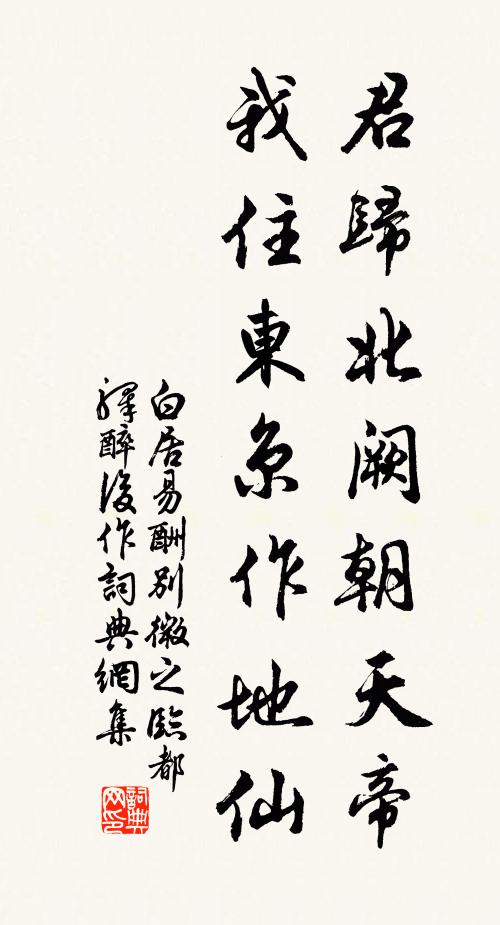 君歸北闕朝天帝
我住東京作地仙
白居易酬別微之臨都
驛醉後作詞典網集
詞典網印